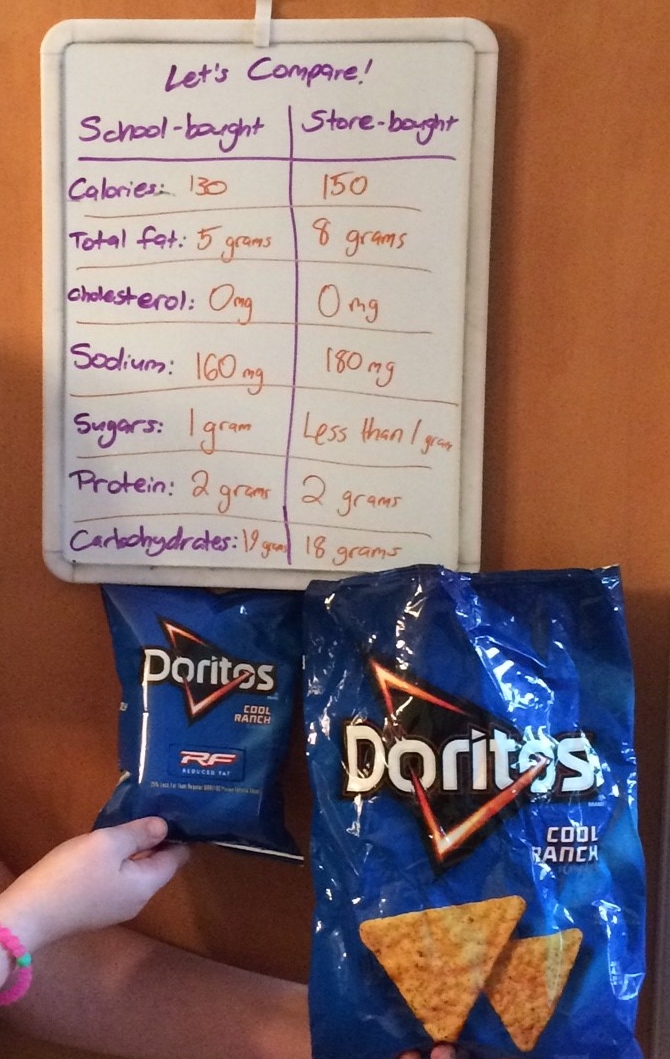 Let's Compare!
School-bought Store-bought
Calories: 130 150
Total fat: 5 grams 8 grams
Cholesterol: 0mg 0 mg
Sodium: 160 mg 180 mg
Sugars: 1 gram Less than 1 gram
Protein: 2 grams 2 grams
Carbohydrates: 19 grams 18 grams
Doritos
COOL
RANCH
RF
REDUCED FAT
Doritos
BRAND
COOL
RANCH